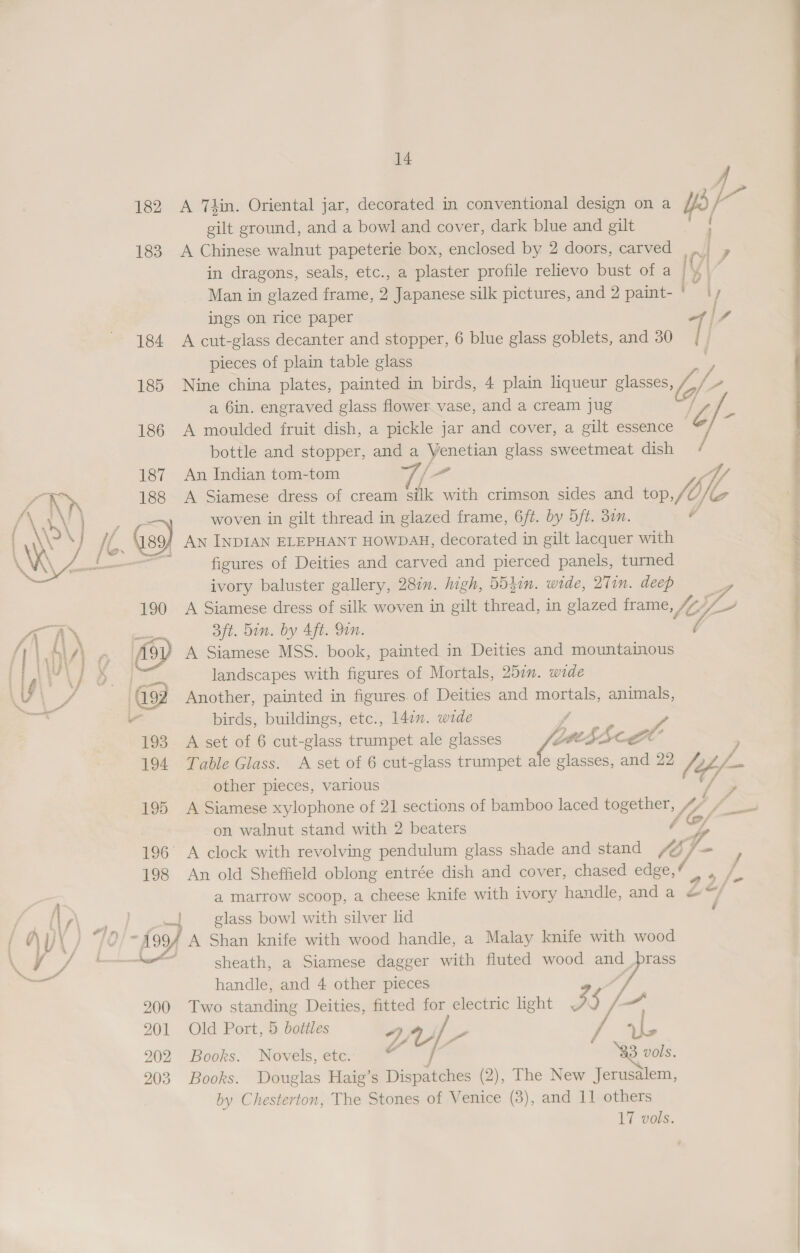 14
182 A 7½in. Oriental jar, decorated in conventional design on a
gilt ground, and a bowl and cover, dark blue and gilt
183 A Chinese walnut papeterie box, enclosed by 2 doors, carved
in dragons, seals, etc., a plaster profile relievo bust of a
Man in glazed frame, 2 Japanese silk pictures, and 2 paint-
ings on rice paper
184 A cut-glass decanter and stopper, 6 blue glass goblets, and 30
pieces of plain table glass
185 Nine china plates, painted in birds, 4 plain liqueur glasses,
a 6in. engraved glass flower vase, and a cream jug
186 A moulded fruit dish, a pickle jar and cover, a gilt essence
bottle and stopper, and a Venetian glass sweetmeat dish
187 An Indian tom-tom 7/-
188 A Siamese dress of cream silk with crimson sides and top,
woven in gilt thread in glazed frame, 6ft. by 5ft. 3in.
189 AN INDIAN ELEPHANT HOWDAH, decorated in gilt lacquer with
figures of Deities and carved and pierced panels, turned
ivory baluster gallery, 28in. high, 55½in. wide, 27in. deep
190 A Siamese dress of silk woven in gilt thread, in glazed frame,
3ft. 5in. by 4ft. 9in.
191 A Siamese MSS. book, painted in Deities and mountainous
landscapes with figures of Mortals, 25in. wide
192 Another, painted in figures of Deities and mortals, animals,
birds, buildings, etc., 14in. wide
193 A set of 6 cut-glass trumpet ale glasses
194 Table Glass. A set of 6 cut-glass trumpet ale glasses, and 22
other pieces, various
195 A Siamese xylophone of 21 sections of bamboo laced together,
on walnut stand with 2 beaters
196 A clock with revolving pendulum glass shade and stand
198 An old Sheffield oblong entrée dish and cover, chased edge,
a marrow scoop, a cheese knife with ivory handle, and a
glass bowl with silver lid
199 A Shan knife with wood handle, a Malay knife with wood
sheath, a Siamese dagger with fluted wood and brass
handle, and 4 other pieces
200 Two standing Deities, fitted for electric light 35/-
201 Old Port, 5 bottles
202 Books. Novels, etc. 33 vols.
203 Books. Douglas Haig's Dispatches (2), The New Jerusalem,
by Chesterton, The Stones of Venice (3), and 11 others
17 vols.